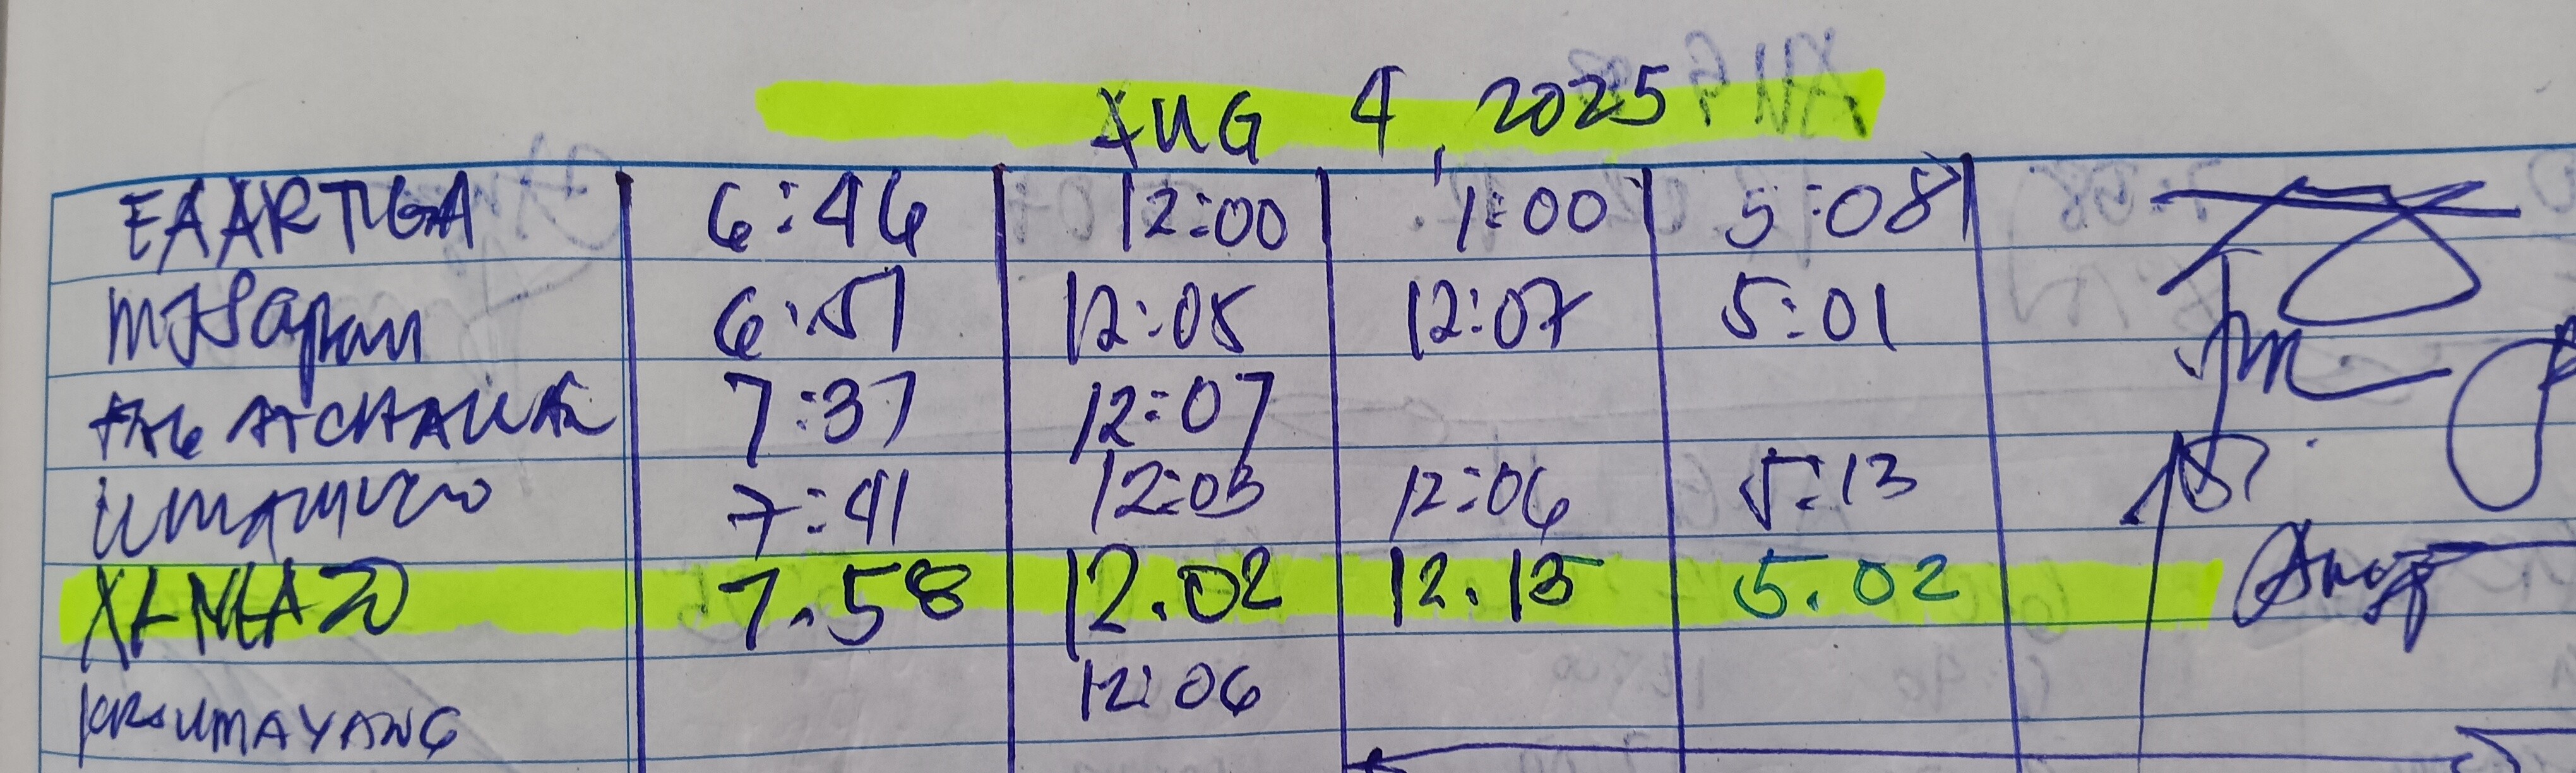 AUG 4, 2025
EAARTIGA 6:46 12:00 1:00 5:08
MJSapan 6:51 12:05 12:07 5:01
7:37 12:07
7:41 12:03 12:06 5:13
7.58 12.02 12.15 5.02
UMAYANG 12:06